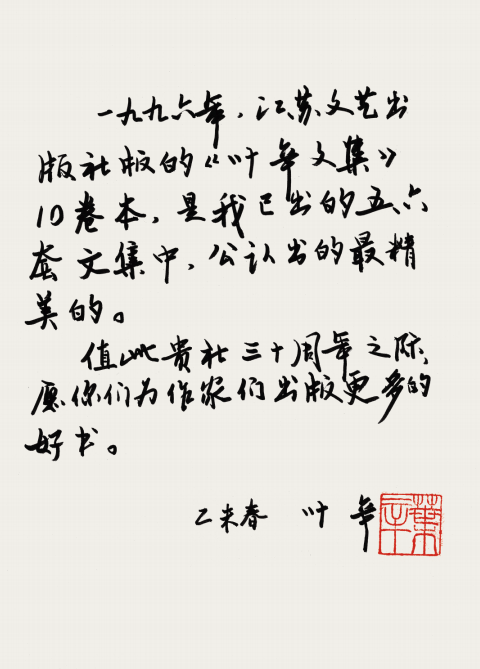 一九九六年，江苏文艺出
版社版的《叶辛文集》
10卷本，是我已出的五六
套文集中，公认出的最精
美的。
值此贵社三十周年之际，
愿你们为作家们出版更多的
好书。
乙未春 叶辛
葉辛